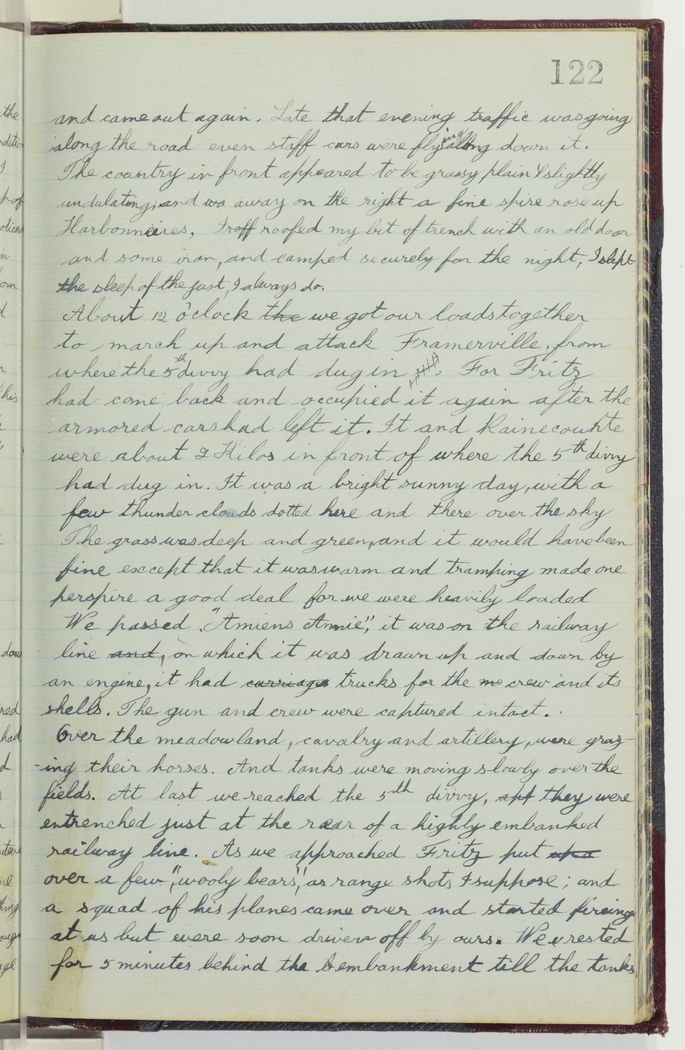 122
and came out again. Late that evening traffic was going
along the road even staff cars were flying along down it.
The country in front appeared to be grassy plain & slightly
undulating, and away on the right a fine spire rose up
Harbonnieres, I roofed my bit of trench with an old door
and some iron, and camped securely for the night, I slept
the sleep of the just, I always do.
About 12 o'clock the we got our loads together
to march up and attack Framerville, from
where the 5th divvy had dug in. For Fritz
had come back and occupied it again after the
armored cars had left it. It and Rainecourte
were about 2 Kilos in front of where the 5th divvy
had dug in. It was a bright sunny day, with a
few thunder clouds dotted here and there over the sky
The grass was deep and green, and it would have been
fine except that it was warm and tramping made one
perspire a good deal for we were heavily loaded
We passed "Amiens Annie", it was on the railway
line and, on which it was drawn up and down by
an engine, it had carriages trucks for the crew and its
shells. The gun and crew were captured intact.
Over the meadowland, cavalry and artillery, were graz-
-ing their horses. And tanks were moving slowly over the
fields. At last we reached the 5th divvy, they were
entrenched just at the rear of a highly embanked
railway line. As we approached Fritz put
over a few "wooly bears", as range shots I suppose; and
a squad of his planes came over and started fireing
at us but were soon driven off by ours. We rested
for 5 minutes behind the embankment till the tanks